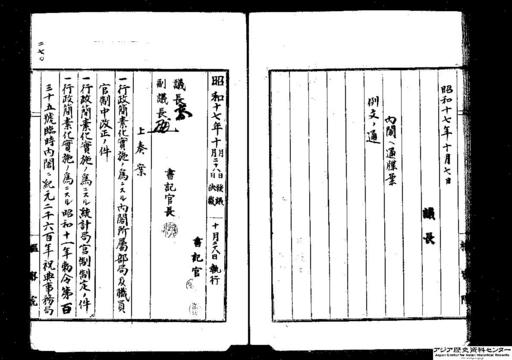 昭和十七年十月七日
議長
内閣ヘ通牒案
例文ノ通
二七〇
昭和十七年十月
十月 日執行
議長
副議長
書記官長
書記官
上奏案
一行政簡素化実施ノ為ニスル内閣所属部局及職員
官制中改正ノ件
一行政簡素化実施ノ為ニスル統計局官制制定ノ件
一行政簡素化実施ノ為ニスル昭和十一年勅令第百
三十五號臨時内閣ニ紀元二千六百年祝典事務局
アジア歴史資料センター
Japan Center for Asian Historical Records